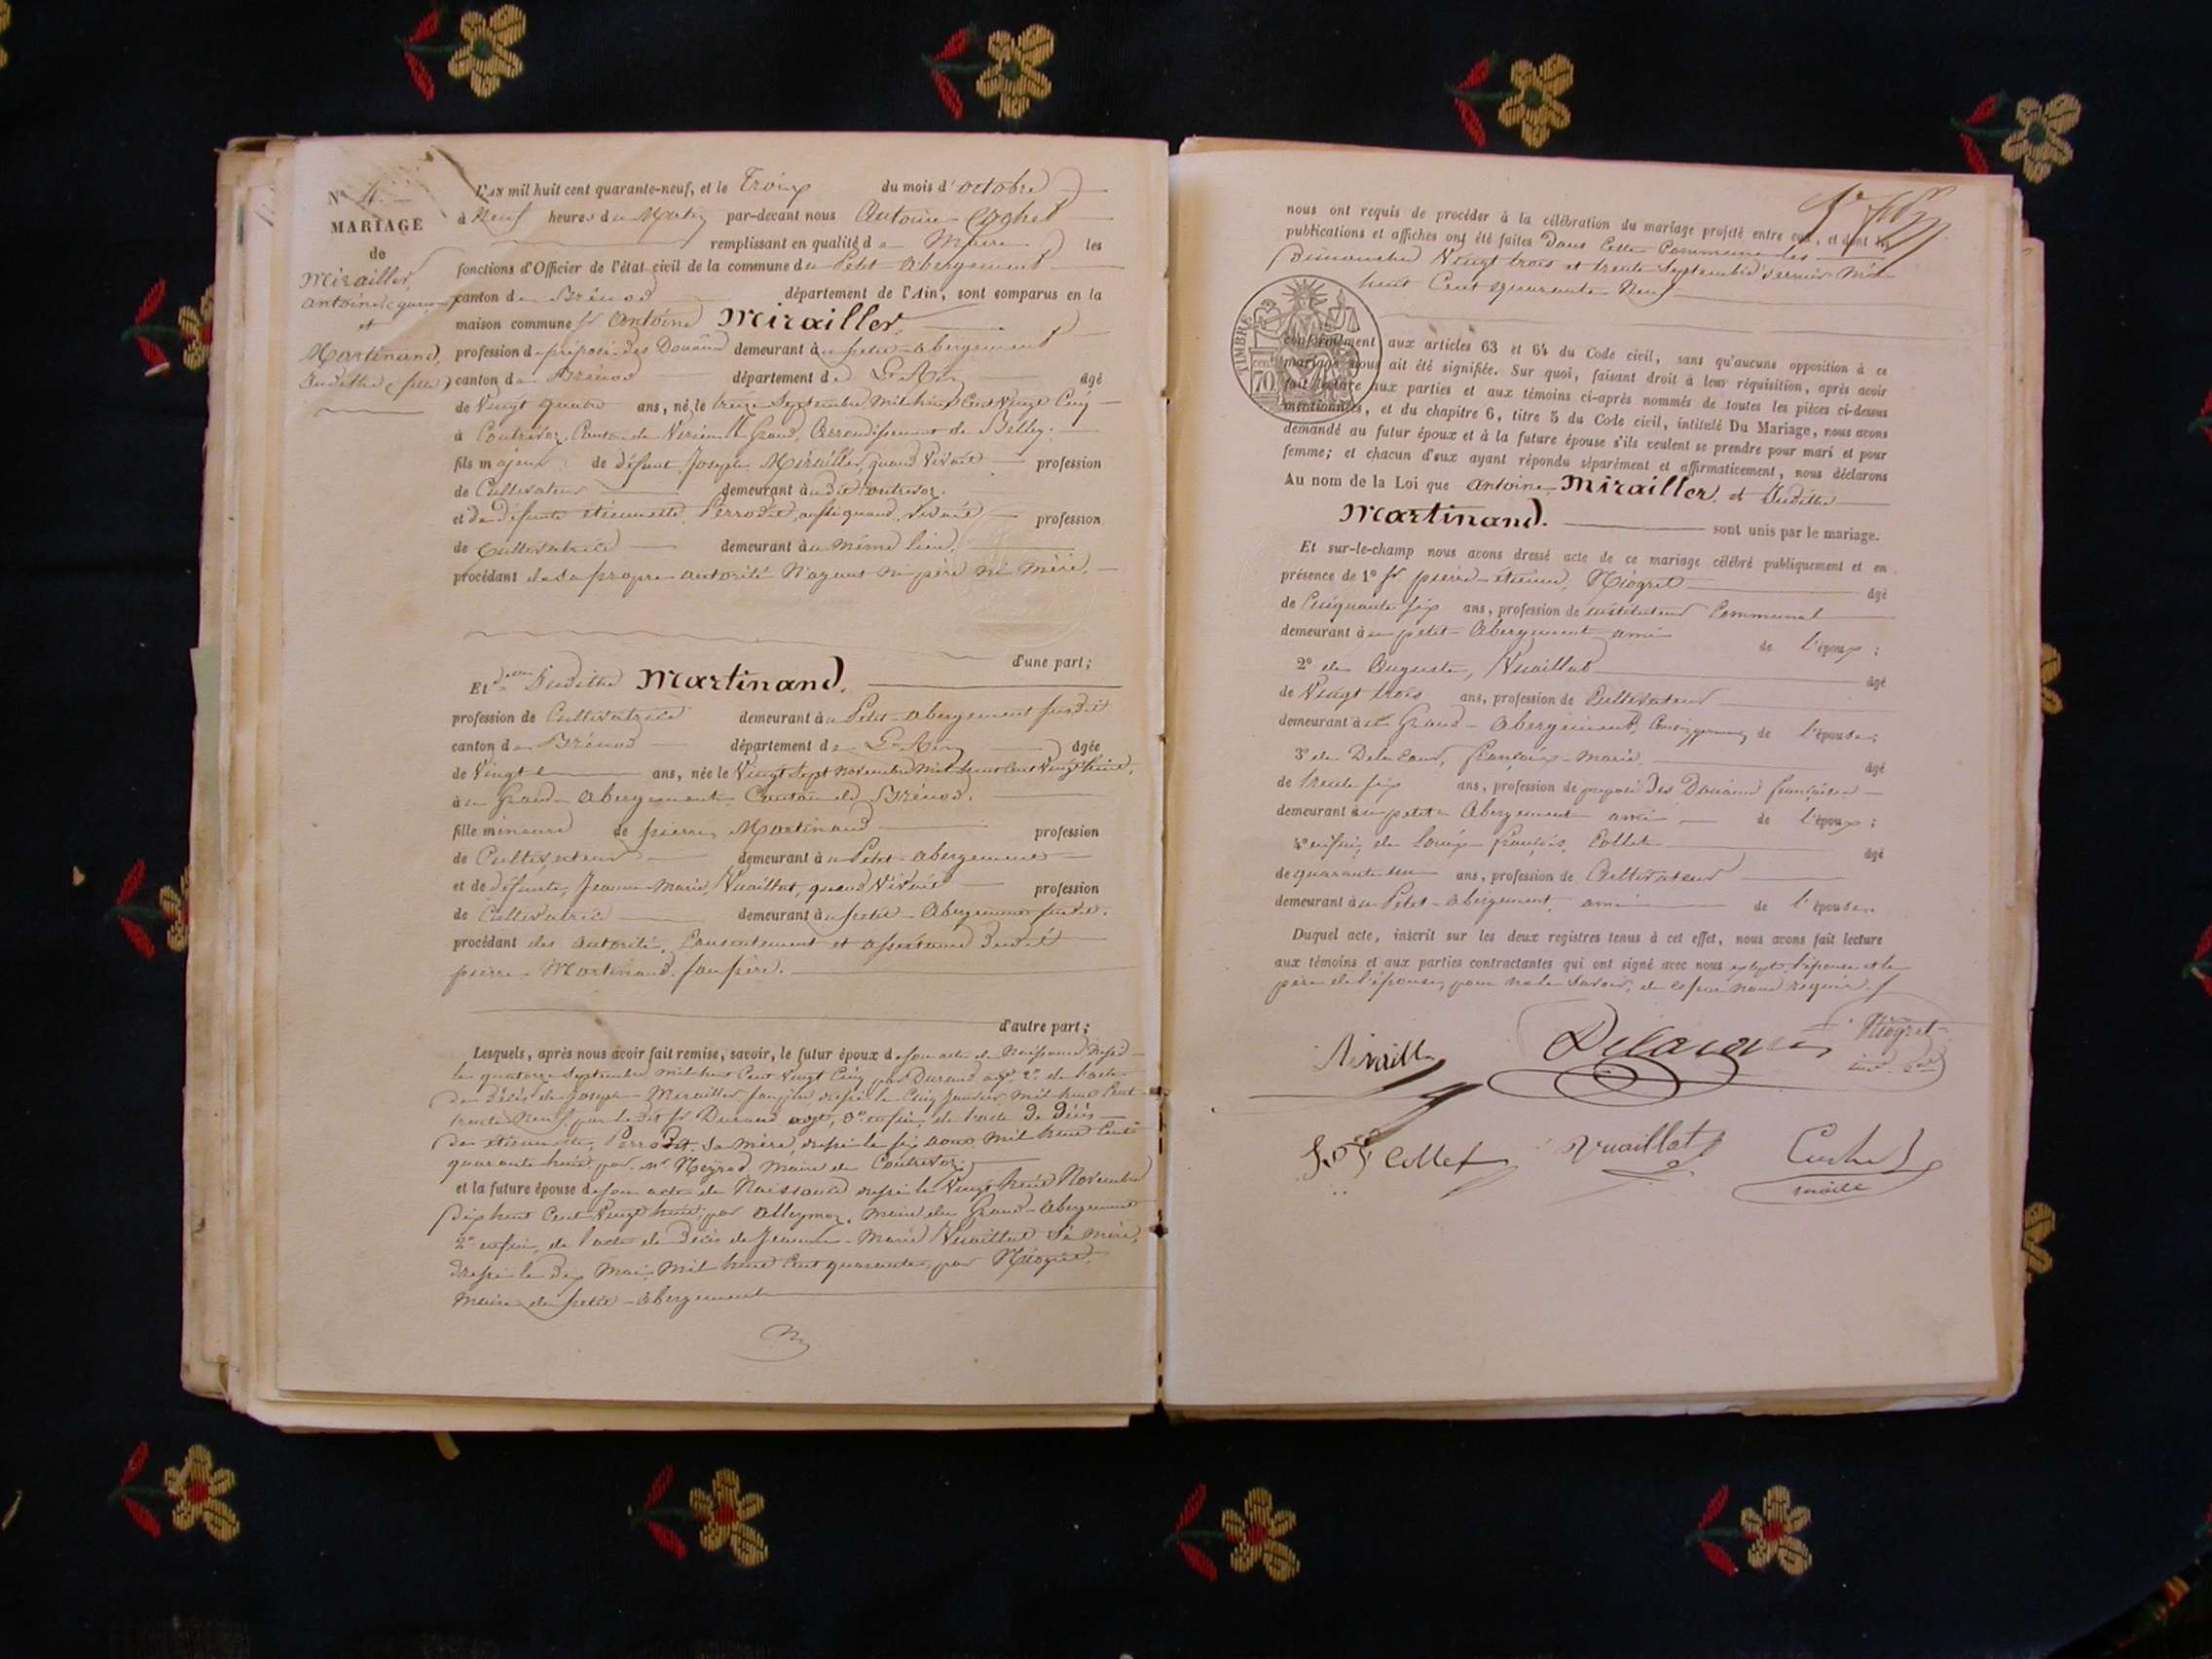 N° 4.
MARIAGE
de
Mirailler,
antoine (garçon)
et
Martinand,
Judithe (fille)
L'AN mil huit cent quarante-neuf, et le Trois du mois d'octobre
à Neuf heures du Matin par-devant nous Antoine Cochet
remplissant en qualité de Maire les
fonctions d'Officier de l'état civil de la commune du Petit-Abergement
canton de Brénod département de l'Ain, sont comparus en la
maison commune Sr Antoine Mirailler,
profession de préposé des Douanes demeurant à petit-abergement
canton de Brénod département de L'Ain âgé
de Vingt quatre ans, né le treize Septembre Mil huit Cent Vingt Cinq
à Contrevoz, Canton de Virieu le Grand, Arrondissement de Belley.
fils majeur de défunt Joseph Mirailler, quand Vivait profession
de Cultivateur demeurant au dit Contrevoz.
et de défunte étiennette Perrodet, aussi quand Vivait profession
de Cultivatrice demeurant au même lieu,
procédant de sa propre autorité N'ayant ni père ni mère.
d'une part;
Et Judithe Martinand.
profession de Cultivatrice demeurant à Petit-abergement susdit
canton de Brénod département de L'Ain âgée
de Vingt ans, née le Vingt Sept Novembre Mil huit Cent Vingt huit,
au Grand-Abergement Canton de Brénod.
fille mineure de pierre Martinand profession
de Cultivateur demeurant à Petit-abergement
et de défunte, Jeanne-Marie Vuaillat, quand Vivait profession
de Cultivatrice demeurant à petit-Abergement susdit.
procédant de autorité, Consentement et assistance dudit
pierre Martinand, son père.
d'autre part;
Lesquels, après nous avoir fait remise, savoir, le futur époux de son acte de Naissance dressé
le quatorze Septembre, mil huit Cent Vingt Cinq par Durand 2° de l'acte
de Décès de Joseph Mirailler, son père dressé le Cinq Janvier Mil huit Cent
trente Neuf, par le dit Sr Durand 3° enfin, de l'acte de Décès
de étiennette Perrodet sa mère, dressé le six Mil huit Cent
quarante huit par Mr Neyrod, Maire de Contrevoz.
et la future épouse de son acte de Naissance dressé le Vingt huit Novembre
dix huit Cent Vingt huit, par Alleymoz, Maire du Grand-Abergement
2° enfin, de l'acte de Décès de Jeanne-Marie Vuaillat Sa mère,
dressé le Dix Mai Mil huit Cent quarante, par Niogret
Maire du petit-abergement
nous ont requis de procéder à la célébration du mariage projeté entre eux, et dont les
publications et affiches ont été faites Dans Cette Commune les
Dimanches Vingt trois et trente Septembre dernier Mil
huit Cent quarante Neuf
TIMBRE
70
conformément aux articles 63 et 64 du Code civil, sans qu'aucune opposition à ce
mariage nous ait été signifiée. Sur quoi, faisant droit à leur réquisition, après avoir
fait lecture aux parties et aux témoins ci-après nommés de toutes les pièces ci-dessus
mentionnées, et du chapitre 6, titre 5 du Code civil, intitulé Du Mariage, nous avons
demandé au futur époux et à la future épouse s'ils veulent se prendre pour mari et pour
femme; et chacun d'eux ayant répondu séparément et affirmativement, nous déclarons
Au nom de la Loi que Antoine Mirailler. et Judithe
Martinand. sont unis par le mariage.
Et sur-le-champ nous avons dressé acte de ce mariage célébré publiquement et en
présence de 1° Sr pierre-étienne Niogret âgé
de Cinquante six ans, profession de instituteur Communal
demeurant à petit-Abergement ami de l'époux;
2° de Auguste, Vuaillat âgé
de Vingt trois ans, profession de Cultivateur
demeurant au Grand-Abergement, Cousin germain de l'épouse;
3° de françois-Marie âgé
de trente six ans, profession de préposé des Douanes françaises
demeurant à petit-Abergement ami de l'époux;
4° enfin, de Louis-françois, Collet âgé
de quarante un ans, profession de Cultivateur
demeurant à Petit-Abergement, ami de l'épouse.
Duquel acte, inscrit sur les deux registres tenus à cet effet, nous avons fait lecture
aux témoins et aux parties contractantes qui ont signé avec nous excepté l'épouse et le
père de l'épouse, pour ne le Savoir, de ce par nous requis.
Miraille
Niogret
L. F. Collet Vuaillat Cochet
maire